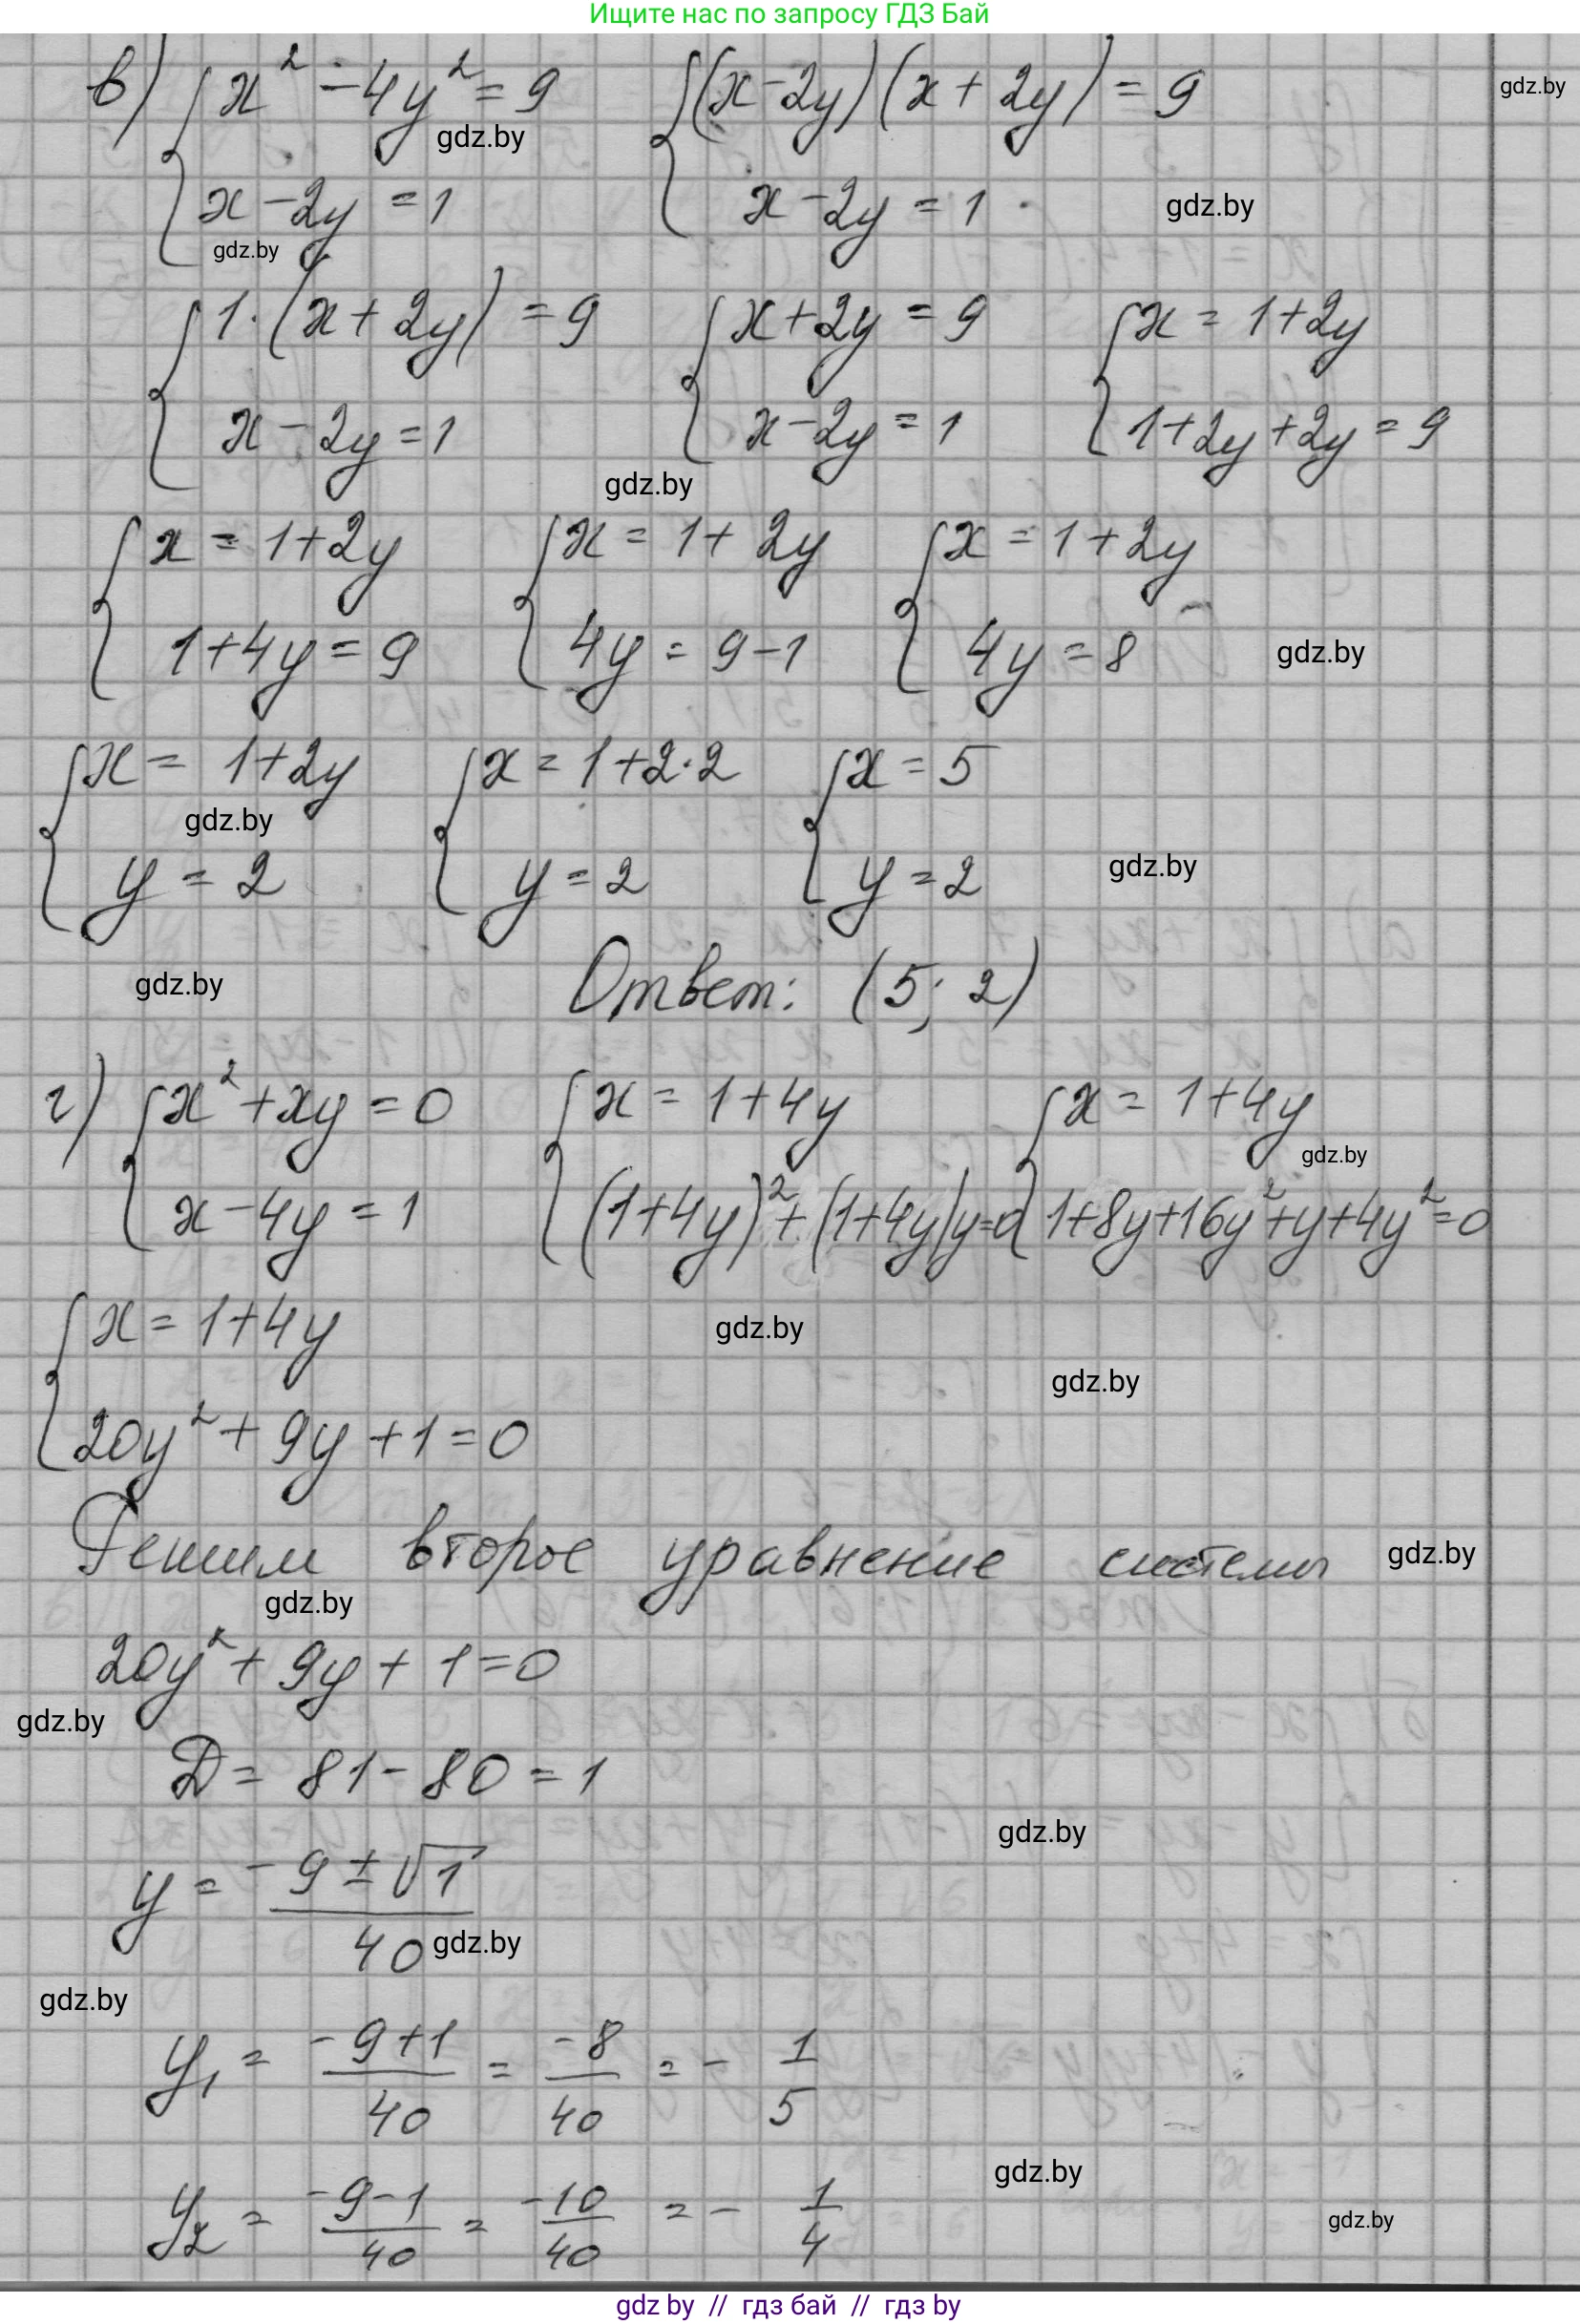 Ищите нас по запросу ГДЗ Бай
в) { x² - 4y² = 9 { (x - 2y)(x + 2y) = 9 gdz.by
gdz.by
x - 2y = 1 x - 2y = 1 gdz.by
gdz.by
{ 1·(x + 2y) = 9 { x + 2y = 9 { x = 1 + 2y
x - 2y = 1 x - 2y = 1 1 + 2y + 2y = 9
gdz.by
{ x = 1 + 2y { x = 1 + 2y { x = 1 + 2y
1 + 4y = 9 4y = 9 - 1 4y = 8 gdz.by
{ x = 1 + 2y { x = 1 + 2·2 { x = 5
gdz.by
y = 2 y = 2 y = 2 gdz.by
gdz.by Ответ: (5; 2)
г) { x² + xy = 0 { x = 1 + 4y { x = 1 + 4y
gdz.by
x - 4y = 1 (1 + 4y)² + (1 + 4y)y = 0 1 + 8y + 16y² + y + 4y² = 0
{ x = 1 + 4y gdz.by
gdz.by
20y² + 9y + 1 = 0
Решим второе уравнение системы gdz.by
gdz.by
20y² + 9y + 1 = 0
gdz.by
D = 81 - 80 = 1
gdz.by
y = (-9 ± √1)/40 gdz.by
gdz.by
y₁ = (-9 + 1)/40 = -8/40 = - 1/5
gdz.by
y₂ = (-9 - 1)/40 = -10/40 = - 1/4
gdz.by
gdz by // гдз бай // гдз by